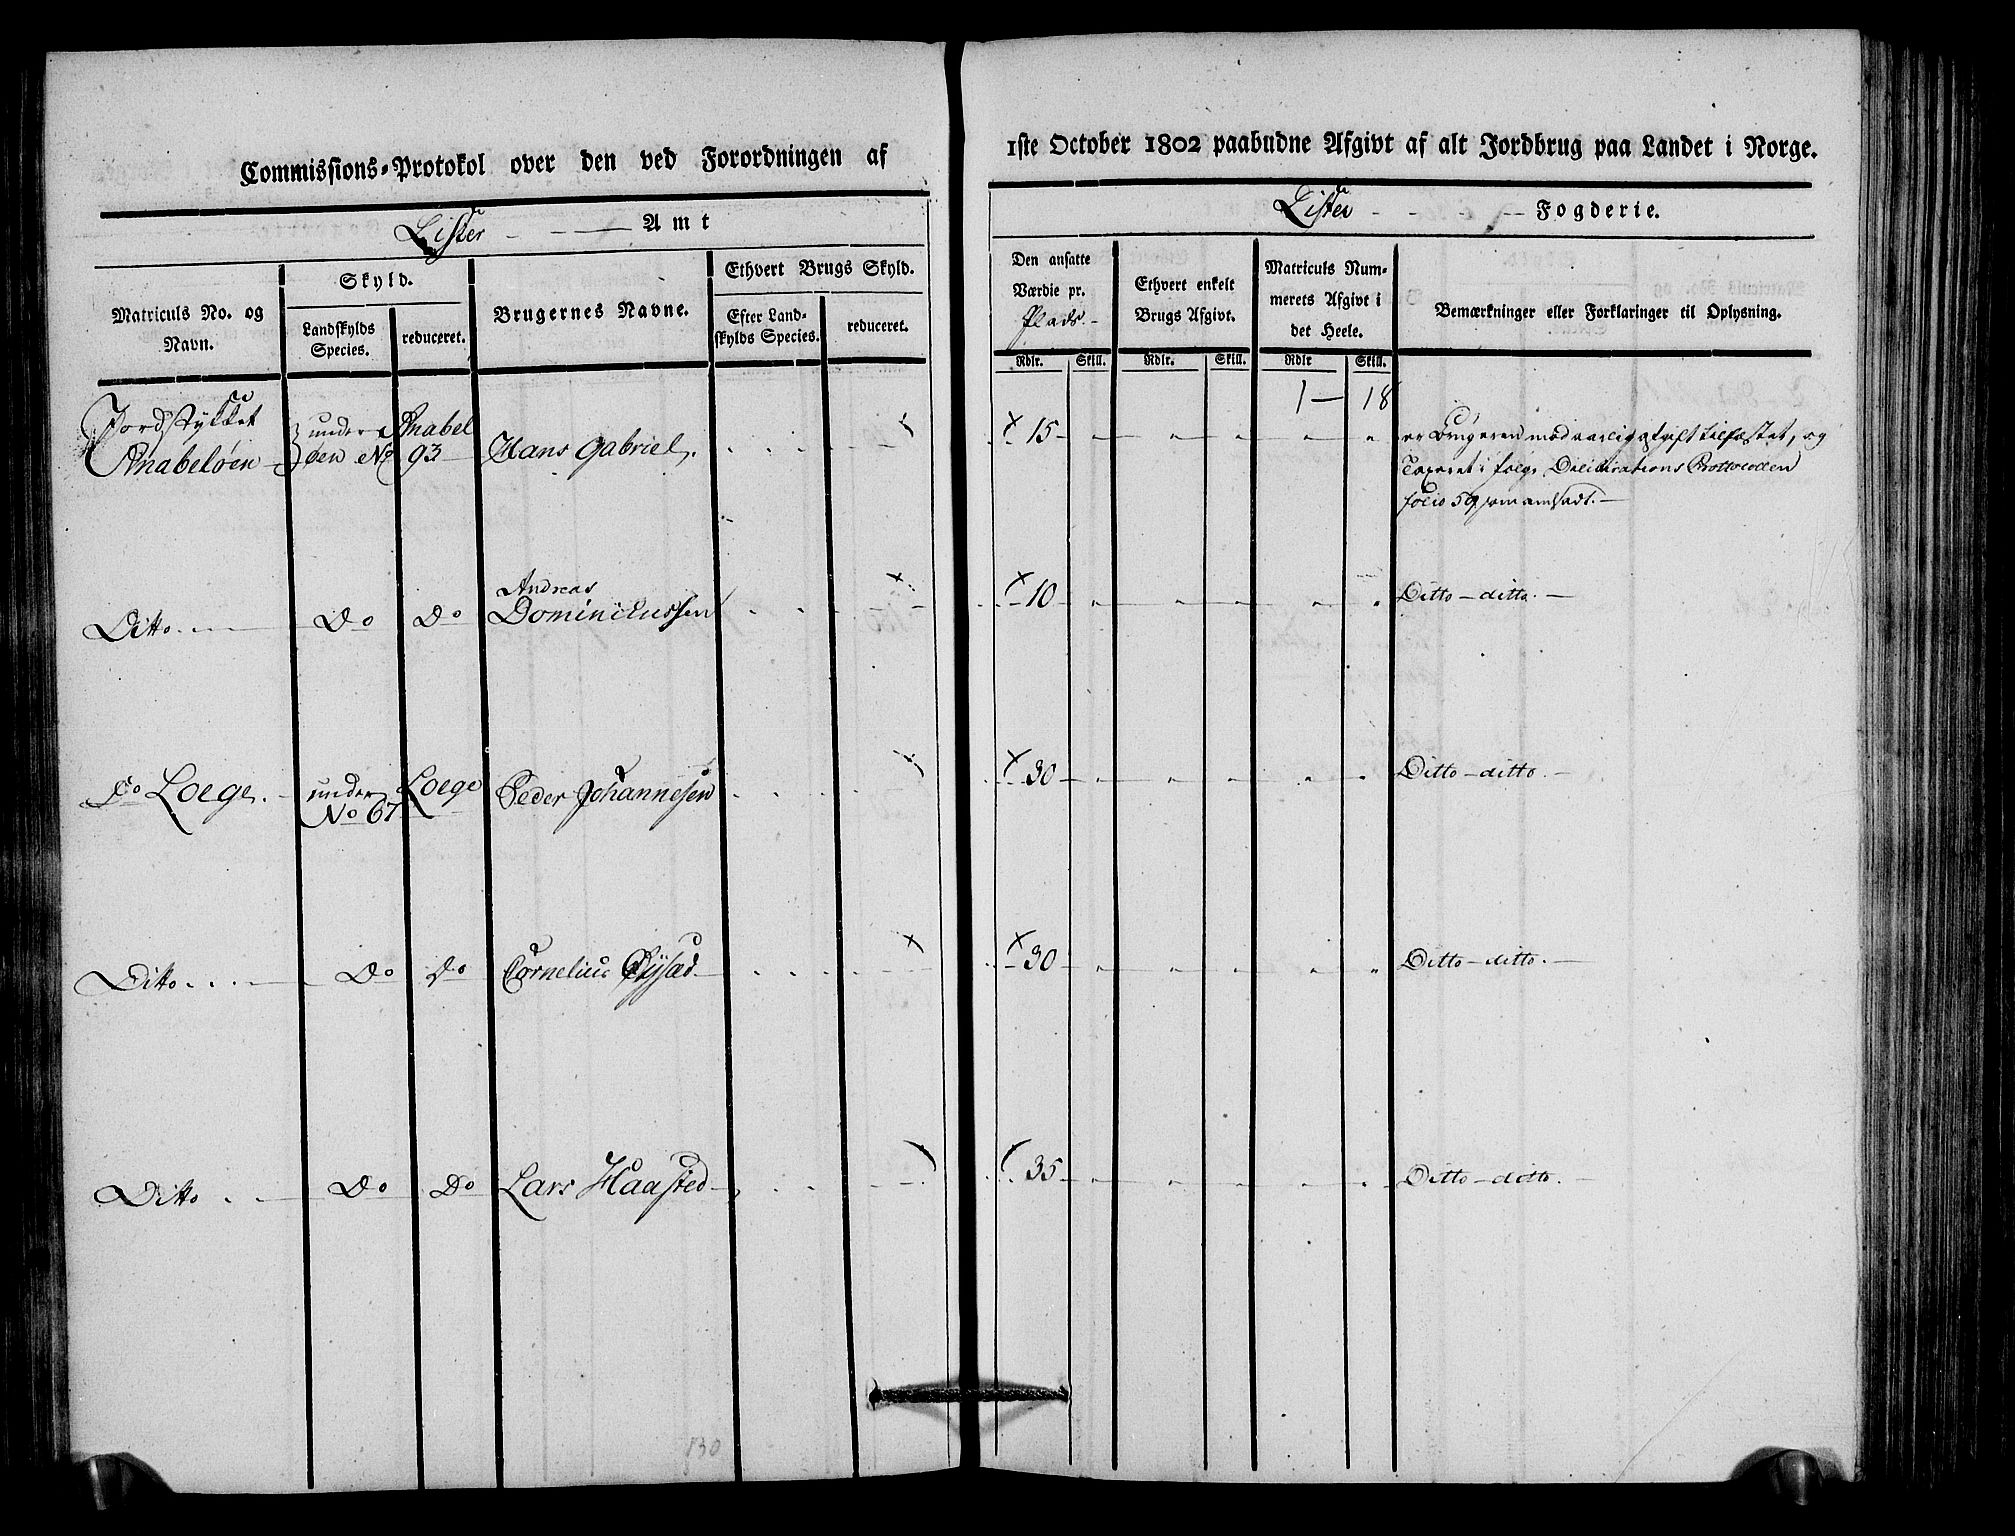 Commissions-Protokol over den ved Forordningen af
1ste October 1802 paabudne Afgivt af alt Jordbrug paa Landet i Norge.
Lister Amt
Lister Fogderie.
Matriculs No. og Navn.
Skyld.
Landskylds Species.
reduceret.
Brugernes Navne.
Ethvert Brugs Skyld.
Efter Landskylds Species.
reduceret.
Den ansatte Værdie pr. Plads.
Ethvert enkelt Brugs Afgivt.
Matriculs Nummerets Afgivt i det Heele.
Bemærkninger eller Forklaringer til Oplysning.
Rdlr. Skill. Rdlr. Skill. Rdlr Skill.
1 — 18
Jordstykket under Anabel
Anabeløen øen No 93 Hans Gabriel. 15 er Brugeren med aarlig afgift tilfæstet, og
Taxeret i følge Deliberations Protocollen
folio 59 som ansadt.
Andreas
Ditto Do Do Dominicussen 10 Ditto - ditto.
Do Loege. under Loege Peder Johannesen 30 Ditto - ditto.
No 67
Ditto Do Do Cornelius Øÿsæd 30 Ditto - ditto.
Ditto Do Do Lars Haasted 35 Ditto - ditto.
130